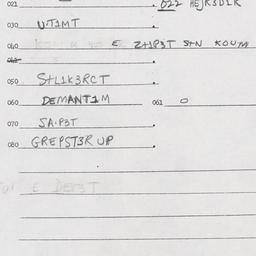 021 . 022 HEJR3D1R
030 U·T1MT .
040 E Z+1P3T S+N KOUM
.
050 S+L1K3RCT .
060 DEMANT1M 061 O
070 SA·P3T .
080 GREPST3R UP .
E DEV3T